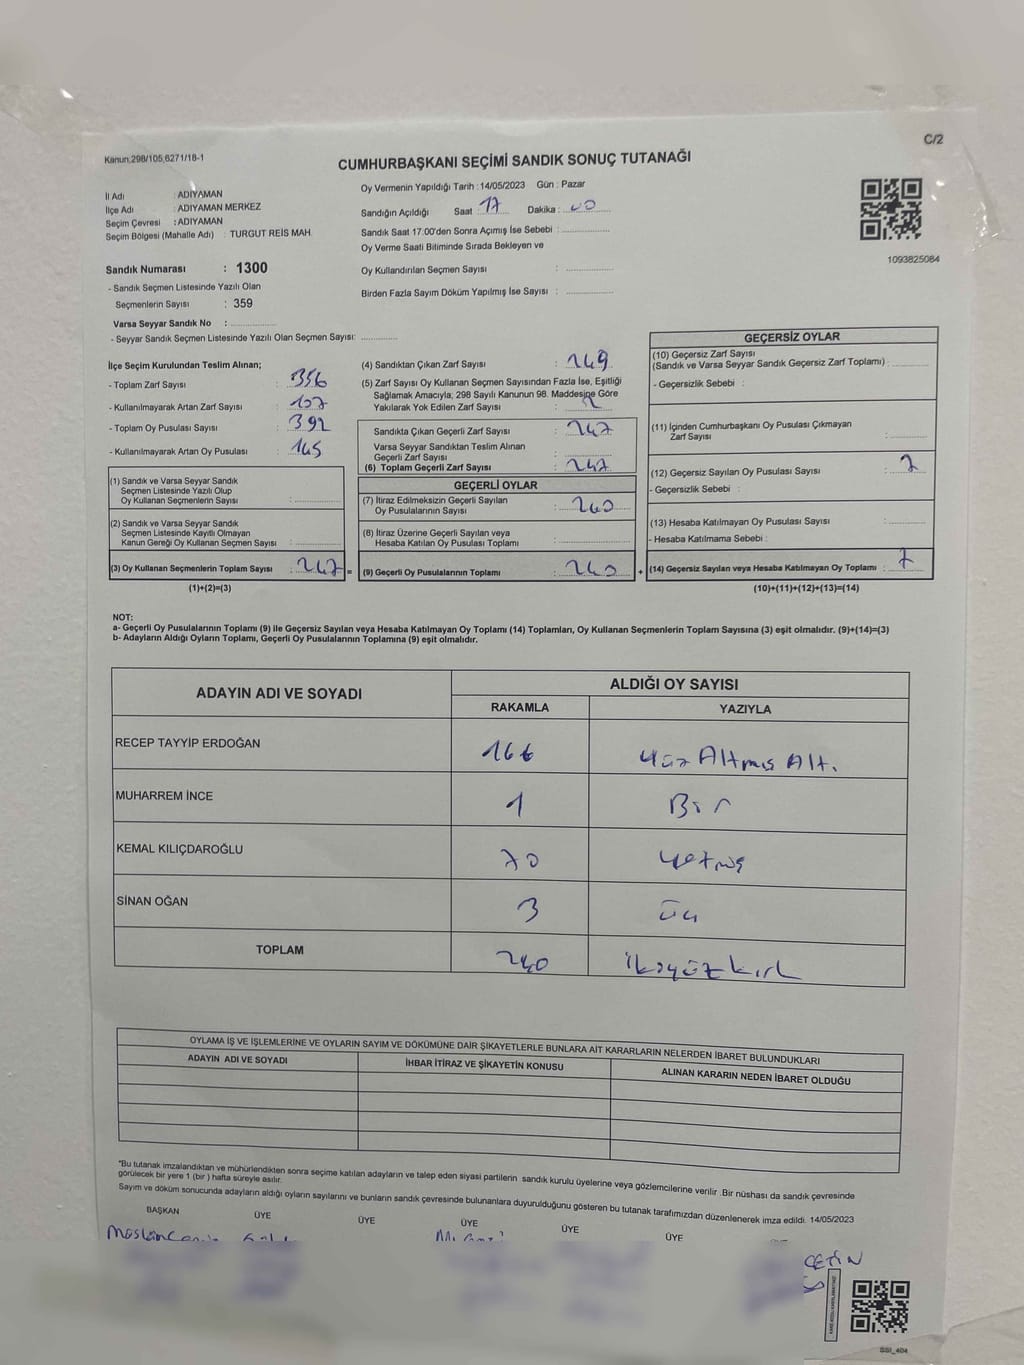 C/2
Kanun.298/105,6271/18-1
CUMHURBAŞKANI SEÇİMİ SANDIK SONUÇ TUTANAĞI
İl Adı : ADIYAMAN
İlçe Adı : ADIYAMAN MERKEZ
Seçim Çevresi : ADIYAMAN
Seçim Bölgesi (Mahalle Adı) : TURGUT REİS MAH.
Oy Vermenin Yapıldığı Tarih : 14/05/2023 Gün : Pazar
Sandığın Açıldığı Saat : 17 Dakika : 00
Sandık Saat 17.00'den Sonra Açımış İse Sebebi :
Oy Verme Saati Bitiminde Sırada Bekleyen ve
Oy Kullandırılan Seçmen Sayısı :
Birden Fazla Sayım Döküm Yapılmış İse Sayısı :
1093825084
Sandık Numarası : 1300
- Sandık Seçmen Listesinde Yazılı Olan
Seçmenlerin Sayısı : 359
Varsa Seyyar Sandık No :
- Seyyar Sandık Seçmen Listesinde Yazılı Olan Seçmen Sayısı:
İlçe Seçim Kurulundan Teslim Alınan;
- Toplam Zarf Sayısı : 356
- Kullanılmayarak Artan Zarf Sayısı : 107
- Toplam Oy Pusulası Sayısı : 392
- Kullanılmayarak Artan Oy Pusulası : 145
(1) Sandık ve Varsa Seyyar Sandık
Seçmen Listesinde Yazılı Olup
Oy Kullanan Seçmenlerin Sayısı :
(2) Sandık ve Varsa Seyyar Sandık
Seçmen Listesinde Kayıtlı Olmayan
Kanun Gereği Oy Kullanan Seçmen Sayısı :
(3) Oy Kullanan Seçmenlerin Toplam Sayısı : 247 =
(1)+(2)=(3)
(4) Sandıktan Çıkan Zarf Sayısı : 249
(5) Zarf Sayısı Oy Kullanan Seçmen Sayısından Fazla İse, Eşitliği
Sağlamak Amacıyla, 298 Sayılı Kanunun 98. Maddesine Göre
Yakılarak Yok Edilen Zarf Sayısı : 2
Sandıkta Çıkan Geçerli Zarf Sayısı : 247
Varsa Seyyar Sandıktan Teslim Alınan
Geçerli Zarf Sayısı :
(6) Toplam Geçerli Zarf Sayısı : 247
GEÇERLİ OYLAR
(7) İtiraz Edilmeksizin Geçerli Sayılan
Oy Pusulalarının Sayısı : 240
(8) İtiraz Üzerine Geçerli Sayılan veya
Hesaba Katılan Oy Pusulası Toplamı :
(9) Geçerli Oy Pusulalarının Toplamı : 240 +
GEÇERSİZ OYLAR
(10) Geçersiz Zarf Sayısı
(Sandık ve Varsa Seyyar Sandık Geçersiz Zarf Toplamı) :
- Geçersizlik Sebebi :
(11) İçinden Cumhurbaşkanı Oy Pusulası Çıkmayan
Zarf Sayısı :
(12) Geçersiz Sayılan Oy Pusulası Sayısı : 7
- Geçersizlik Sebebi :
(13) Hesaba Katılmayan Oy Pusulası Sayısı :
- Hesaba Katılmama Sebebi :
(14) Geçersiz Sayılan veya Hesaba Katılmayan Oy Toplamı : 7
(10)+(11)+(12)+(13)=(14)
NOT:
a- Geçerli Oy Pusulalarının Toplamı (9) ile Geçersiz Sayılan veya Hesaba Katılmayan Oy Toplamı (14) Toplamları, Oy Kullanan Seçmenlerin Toplam Sayısına (3) eşit olmalıdır. (9)+(14)=(3)
b- Adayların Aldığı Oyların Toplamı, Geçerli Oy Pusulalarının Toplamına (9) eşit olmalıdır.
ADAYIN ADI VE SOYADI ALDIĞI OY SAYISI
RAKAMLA YAZIYLA
RECEP TAYYİP ERDOĞAN 166 Yüz Altmış Alt.
MUHARREM İNCE 1 Bir
KEMAL KILIÇDAROĞLU 70 Yetmiş
SİNAN OĞAN 3 Üç
TOPLAM 240 İkiyüzkırk
OYLAMA İŞ VE İŞLEMLERİNE VE OYLARIN SAYIM VE DÖKÜMÜNE DAİR ŞİKAYETLERLE BUNLARA AİT KARARLARIN NELERDEN İBARET BULUNDUKLARI
ADAYIN ADI VE SOYADI İHBAR İTİRAZ VE ŞİKAYETİN KONUSU ALINAN KARARIN NEDEN İBARET OLDUĞU
*Bu tutanak imzalandıktan ve mühürlendikten sonra seçime katılan adayların ve talep eden siyasi partilerin sandık kurulu üyelerine veya gözlemcilerine verilir .Bir nüshası da sandık çevresinde
görülecek bir yere 1 (bir ) hafta süreyle asılır.
Sayım ve döküm sonucunda adayların aldığı oyların sayılarını ve bunların sandık çevresinde bulunanlara duyurulduğunu gösteren bu tutanak tarafımızdan düzenlenerek imza edildi. 14/05/2023
BAŞKAN ÜYE ÜYE ÜYE ÜYE ÜYE
ÇETİN
SSI_404